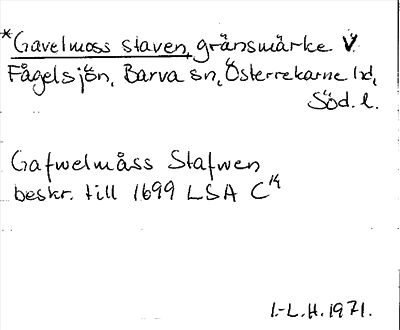 *Gavelmoss staven, gränsmärke V.
Fågelsjön, Barva sn, Österrekarne hd,
Söd. l.
Gafwelmåss Stafwen
beskr. till 1699 LSA C14
I.-L.H. 1971.